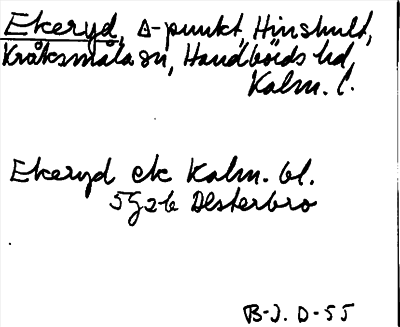 Ekeryd, Δ-punkt, Hinshult,
Kråksmåla sn, Handbörds hd,
Kalm. l.
Ekeryd ek Kalm. bl.
5G2b Älsterbro
B-J. D-55